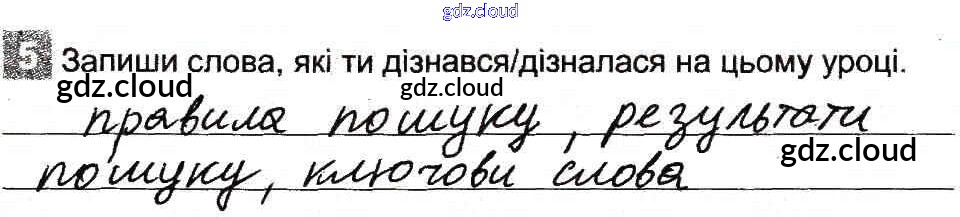 gdz.cloud
5 Запиши слова, які ти дізнався/дізналася на цьому уроці.
gdz.cloud gdz.cloud
правила пошуку, результати
gdz.cloud
пошуку, ключови слова